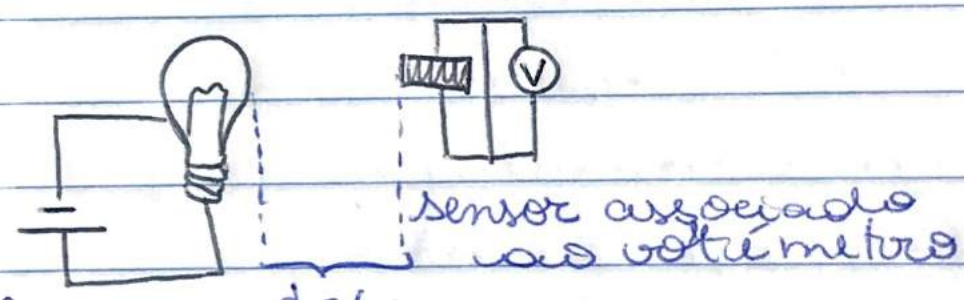 V
sensor associado
ao voltímetro